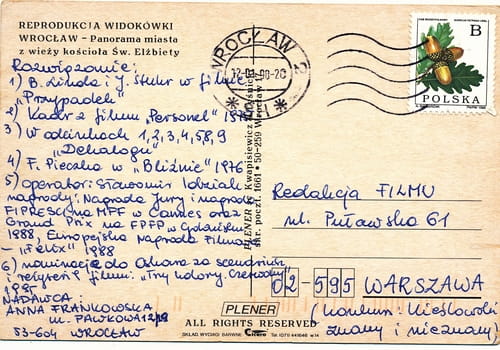 REPRODUKCJA WIDOKÓWKI
WROCŁAW – Panorama miasta
z wieży kościoła Św. Elżbiety
Rozwiązanie:
1) B. Linda i J. Stuhr w filmie
"Przypadek"
2) Kadr z filmu "Personel"
3) W odcinkach 1, 2, 3, 4, 5, 8, 9
"Dekalogu"
4) F. Pieczka w "Bliźnie" 1976
5) operator: Sławomir Idziak
nagrody: Nagroda Jury i nagroda
FIPRESCI na MFF w Cannes oraz
Grand Prix na FPFP w Gdańsku
1988, Europejska Nagroda Filmowa
"Felix" 1988
6) nominacja do Oskara za scenariusz
i reżyserię filmu: "Trzy kolory. Czerwony"
1995
NADAWCA:
ANNA FRANKOWSKA
ul. PAWŁOWA
53-604 WROCŁAW
PLENER ul. Kwapisiewicz
skr. poczt. 1661 • 50-259 Wrocław
WROCŁAW 2
B
POLSKA
Redakcja FILMU
ul. Puławska 61
02-595 WARSZAWA
(konkurs: Kieślowski
znany i nieznany)
PLENER
ALL RIGHTS RESERVED